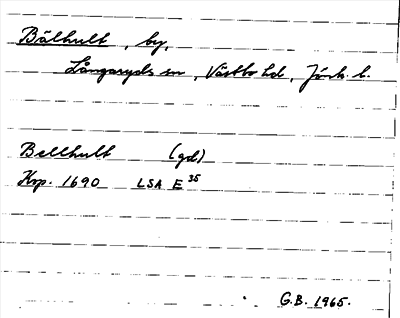 Bälhult, by,
Långaryds sn, Västbo hd, Jönk. l.
Bellhult (gd)
Krp. 1690 LSA E 35
G.B. 1965.